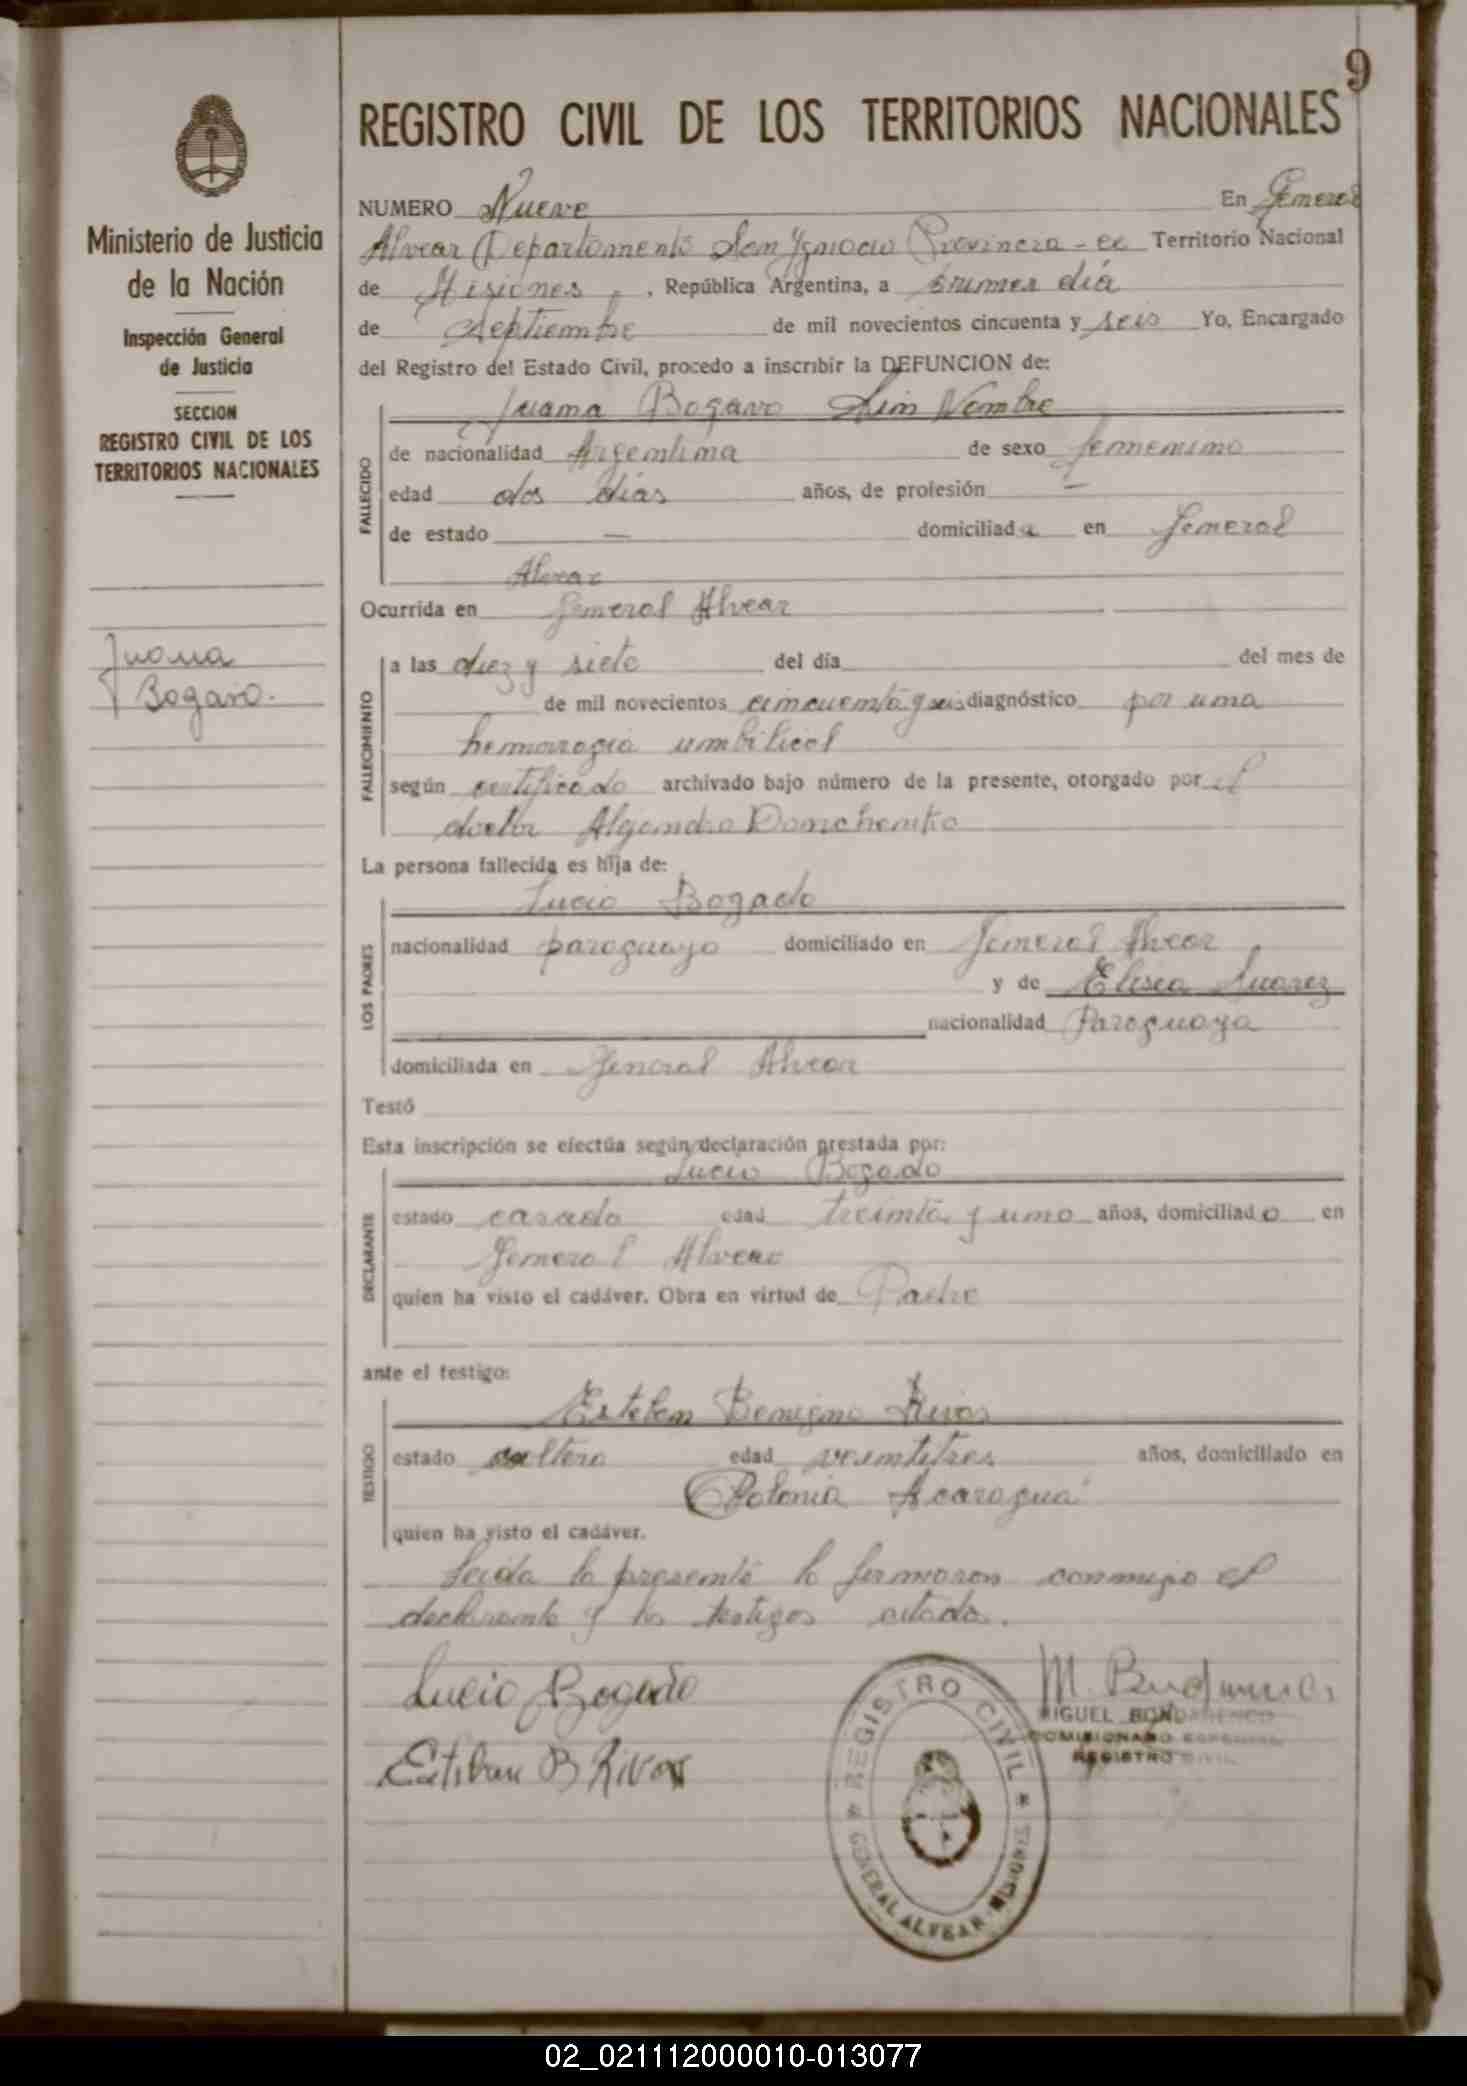 9
REGISTRO CIVIL DE LOS TERRITORIOS NACIONALES
Ministerio de Justicia
de la Nación
Inspección General
de Justicia
SECCION
REGISTRO CIVIL DE LOS
TERRITORIOS NACIONALES
Juana
Bogaro.
NUMERO Nueve En General
Alvear Departamento San Ygnacio Provincia Territorio Nacional
de Misiones, República Argentina, a primer día
de Septiembre de mil novecientos cincuenta y seis Yo, Encargado
del Registro del Estado Civil, procedo a inscribir la DEFUNCION de:
Juana Bogaro Sin Nombre
FALLECIDO
de nacionalidad Argentina de sexo femenino
edad dos dias años, de profesión —
de estado — domiciliada en General
Alvear
Ocurrida en General Alvear
FALLECIMIENTO
a las diez y siete del día del mes de
de mil novecientos cincuenta y seis diagnóstico por una
hemorragia umbilical
según certificado archivado bajo número de la presente, otorgado por el
doctor
La persona fallecida es hija de:
Lucio Bogado
LOS PADRES
nacionalidad paraguayo domiciliado en General Alvear
y de Elisea Suarez
nacionalidad Paraguaya
domiciliada en General Alvear
Testó
Esta inscripción se efectúa según declaración prestada por:
Lucio Bogado
DECLARANTE
estado casado edad treinta y uno años, domiciliado en
General Alvear
quien ha visto el cadáver. Obra en virtud de Padre
ante el testigo:
Esteban Benigno Rivas
TESTIGO
estado soltero edad veintitres años, domiciliado en
Colonia Acaragua
quien ha visto el cadáver.
Leida la presente la firmaron conmigo el
declarante y los testigos citado.
Lucio Bogado
Esteban B Rivas
REGISTRO CIVIL
* GENERAL ALVEAR - MISIONES *
MIGUEL BONDARENCO
COMISIONADO ESPECIAL
REGISTRO CIVIL
02_021112000010-013077